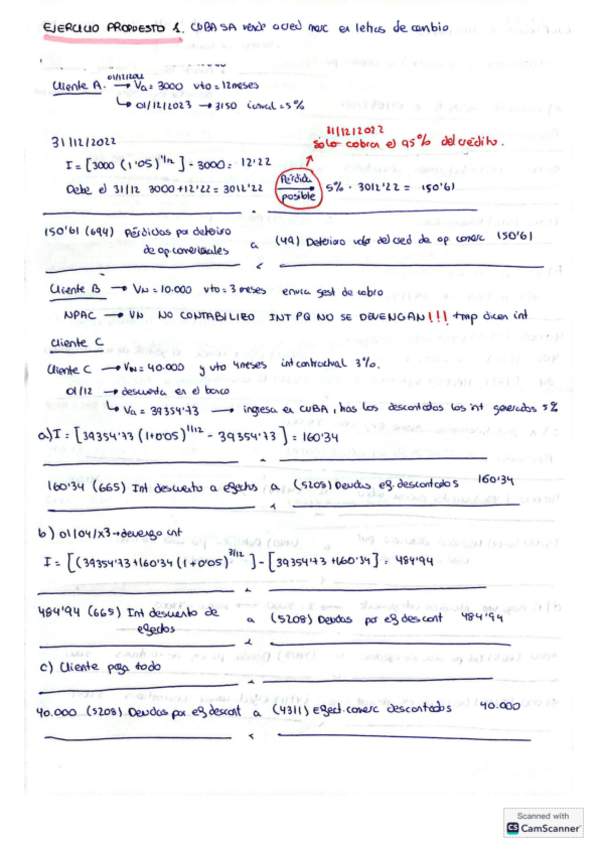 EJERCICIO PROPUESTO 1. CUBA SA vende a cred merc en letras de cambio
Cliente A. → Va = 3000 vto = 12 meses
01/12/2022
↳ 01/12/2023 → 3150 i anual = 5%
31/12/2022
31/12/2022
Solo cobra el 95% del crédito.
I = [3000 (1'05)^1/12] - 3000 = 12'22
Debe el 31/12 3000+12'22 = 3012'22 Pérdida posible 5% · 3012'22 = 150'61
150'61 (694) Pérdidas por deterioro de op. comerciales a (49) Deterioro valor del cred de op comerc 150'61
Cliente B → VN = 10.000 vto = 3 meses envia gest de cobro
NPAC → VN NO CONTABILIZO INT PQ NO SE DEVENGAN!!! tmp dicen int
Cliente C
Cliente C → VN = 40.000 y vto 4 meses int contractual 3%.
01/12 → descuenta en el banco
↳ Va = 39354'73 → ingresa en CUBA, has los descontados los int generados 5%
a) I = [39354'73 (1+0'05)^1/12 - 39354'73] = 160'34
160'34 (665) Int descuento a efectos a (5208) Deudas ef. descontados 160'34
b) 01/04/x3 → devengo int
I = [(39354'73+160'34 (1+0'05)^3/12] - [39354'73 + 160'34] = 484'94
484'94 (665) Int descuento de efectos a (5208) Deudas por ef descont 484'94
c) Cliente paga todo
40.000 (5208) Deudas por ef descont a (4311) Efect. comerc descontados 40.000
Scanned with
CS CamScanner